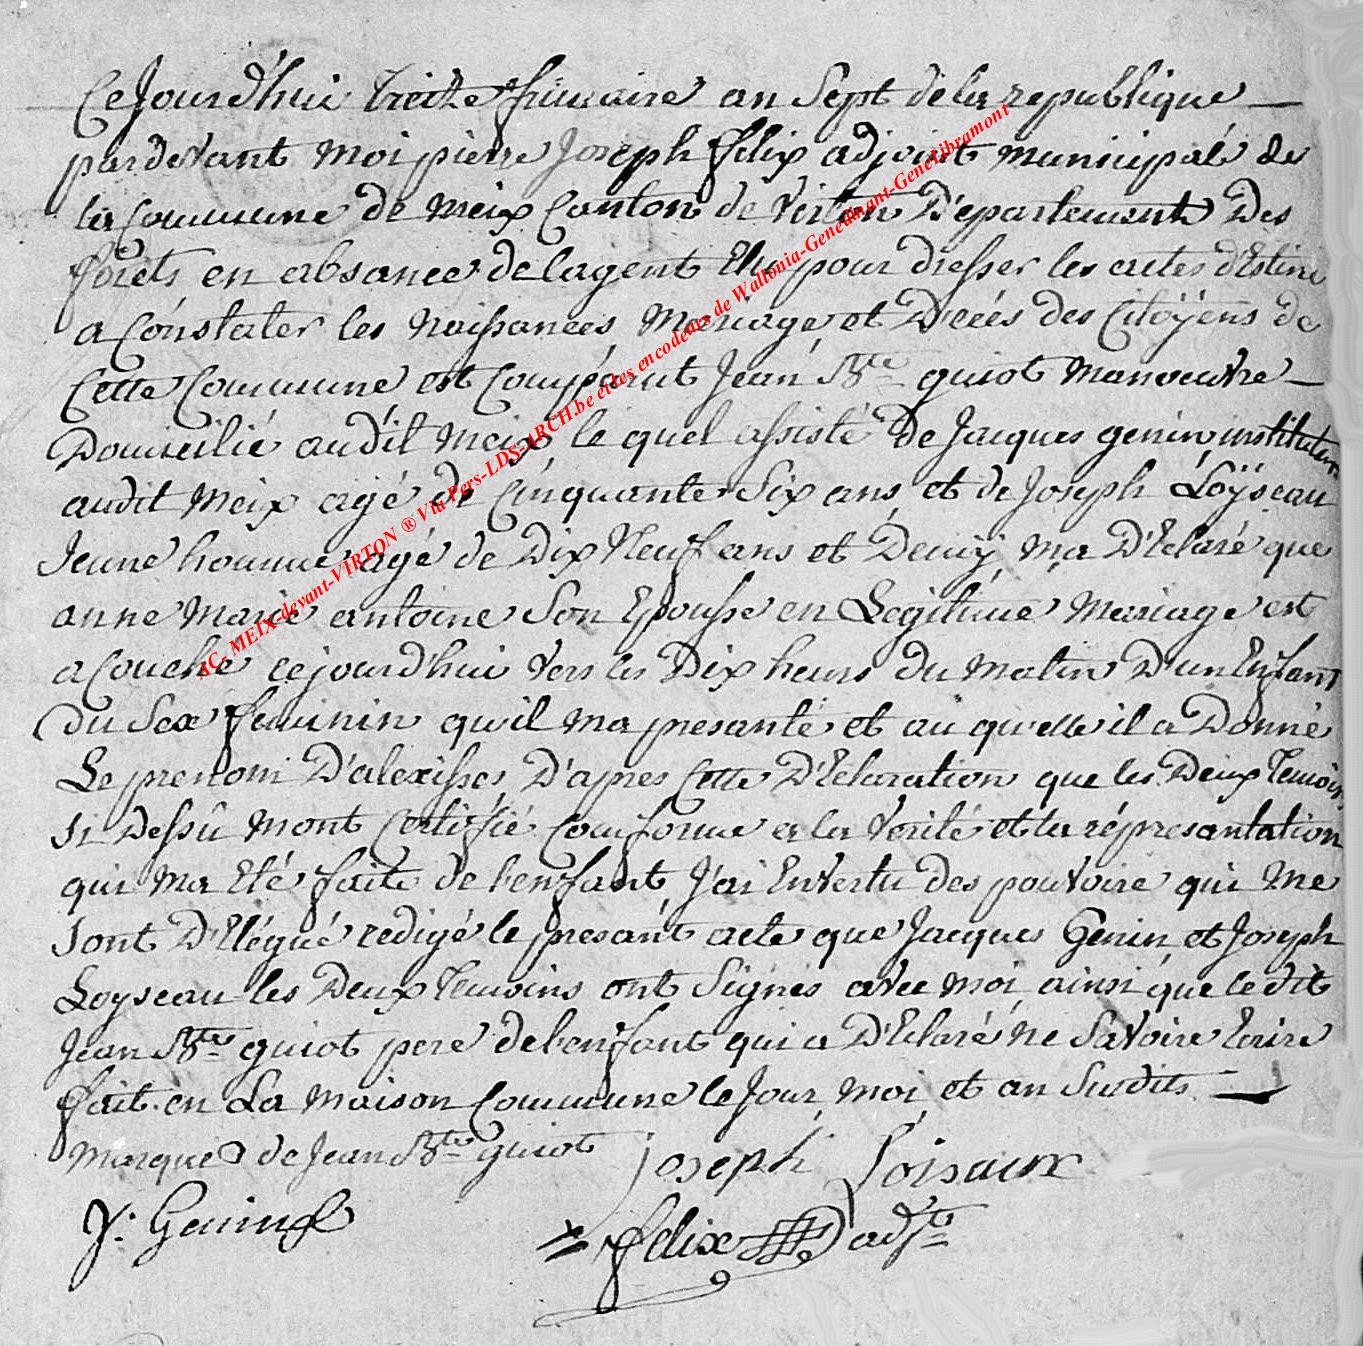 Cejourd'hui treize frimaire an Sept de la republique —
pardevant moi pierre Joseph felix adjoint municipale de
la Commune de meix Canton de Virton D'epartement Des
forets en absance de lagent Elu pour dresser les actes d'Estiné
a Constater les Naissances, Mariage, et Décés des Citoÿens de
Cette Commune est Comparut Jean Bte guiot manoeuvre —
Domicilié audit Meix, le quel assisté de Jacques genin instituteur
audit Meix agé de Cinquante Six ans, et de Joseph Loÿseau
Jeune homme agé de Dix Neuf ans et Demÿ, ma D'Eclaré que
anne Marie antoine Son Epousse en Legitime Mariage est
acouché cejourd'hui vers les Dix heurs du Matin D'un Enfant
du Sex feminin qu'il ma presanté et au qu'elle il a Donné
Le prenom D'alexisses, D'apres Cette D'Eclaration que les Deux Temoins
si Dessû Mont Certifié Conforme a la Verité et la répresantation
qui Ma Eté faite de l'enfant J'ai Envertu des pouvoire qui Me
Sont D'Elégué redigé le presant acte que Jacques Genin et Joseph
Loyseau les Deux Temoins ont Signés avec moi ainsi que le dit
Jean Bte guiot pere de l'enfant qui a D'Eclaré ne Savoire Ecrire
fait en La Maison Commune le Jour, Moi, et an Susdits —
Marque de Jean Bte guiot
Joseph Loisaux
J. Genin
felix adjte
AC. MEIX-devant-VIRTON ® Via Pers-LDS-ARCH.be et les encodeurs de Wallonia-Genedinant-GeneLibramont